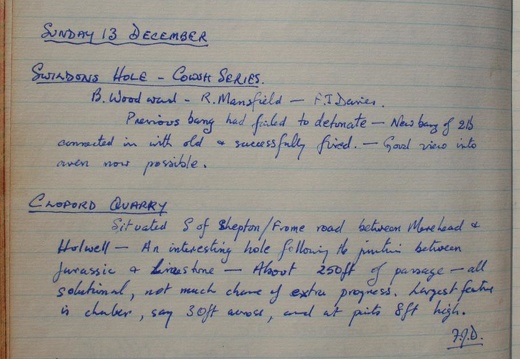 SUNDAY 13 DECEMBER
SWINDONS HOLE - COWSH SERIES.
B. Woodward - R. Mansfield - F.J. Davies.
Previous bang had failed to detonate - New bang of 2lb
connected in with old & successfully fired. - Good view into
aven now possible.
CLOFORD QUARRY
Situated S of Shepton/Frome road between Merehead &
Holwell - An interesting hole following the junction between
Jurassic & Limestone - About 250ft of passage - all
solutional, not much chance of extra progress. Largest feature
is chamber, say 30ft across, and at parts 8ft high.
F.J.D.